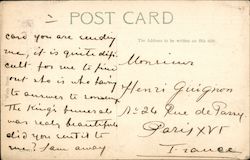 POST CARD
The Address to be written on this side.
card you are sending
me, it is quite diffi
cult for me to find
out who is who having
to answer to so many
The King's funeral
was really beautiful
did you send it to
me? I am away
Monsieur
Henri Guignon
No 24 Rue de Passy
Paris XVI
France